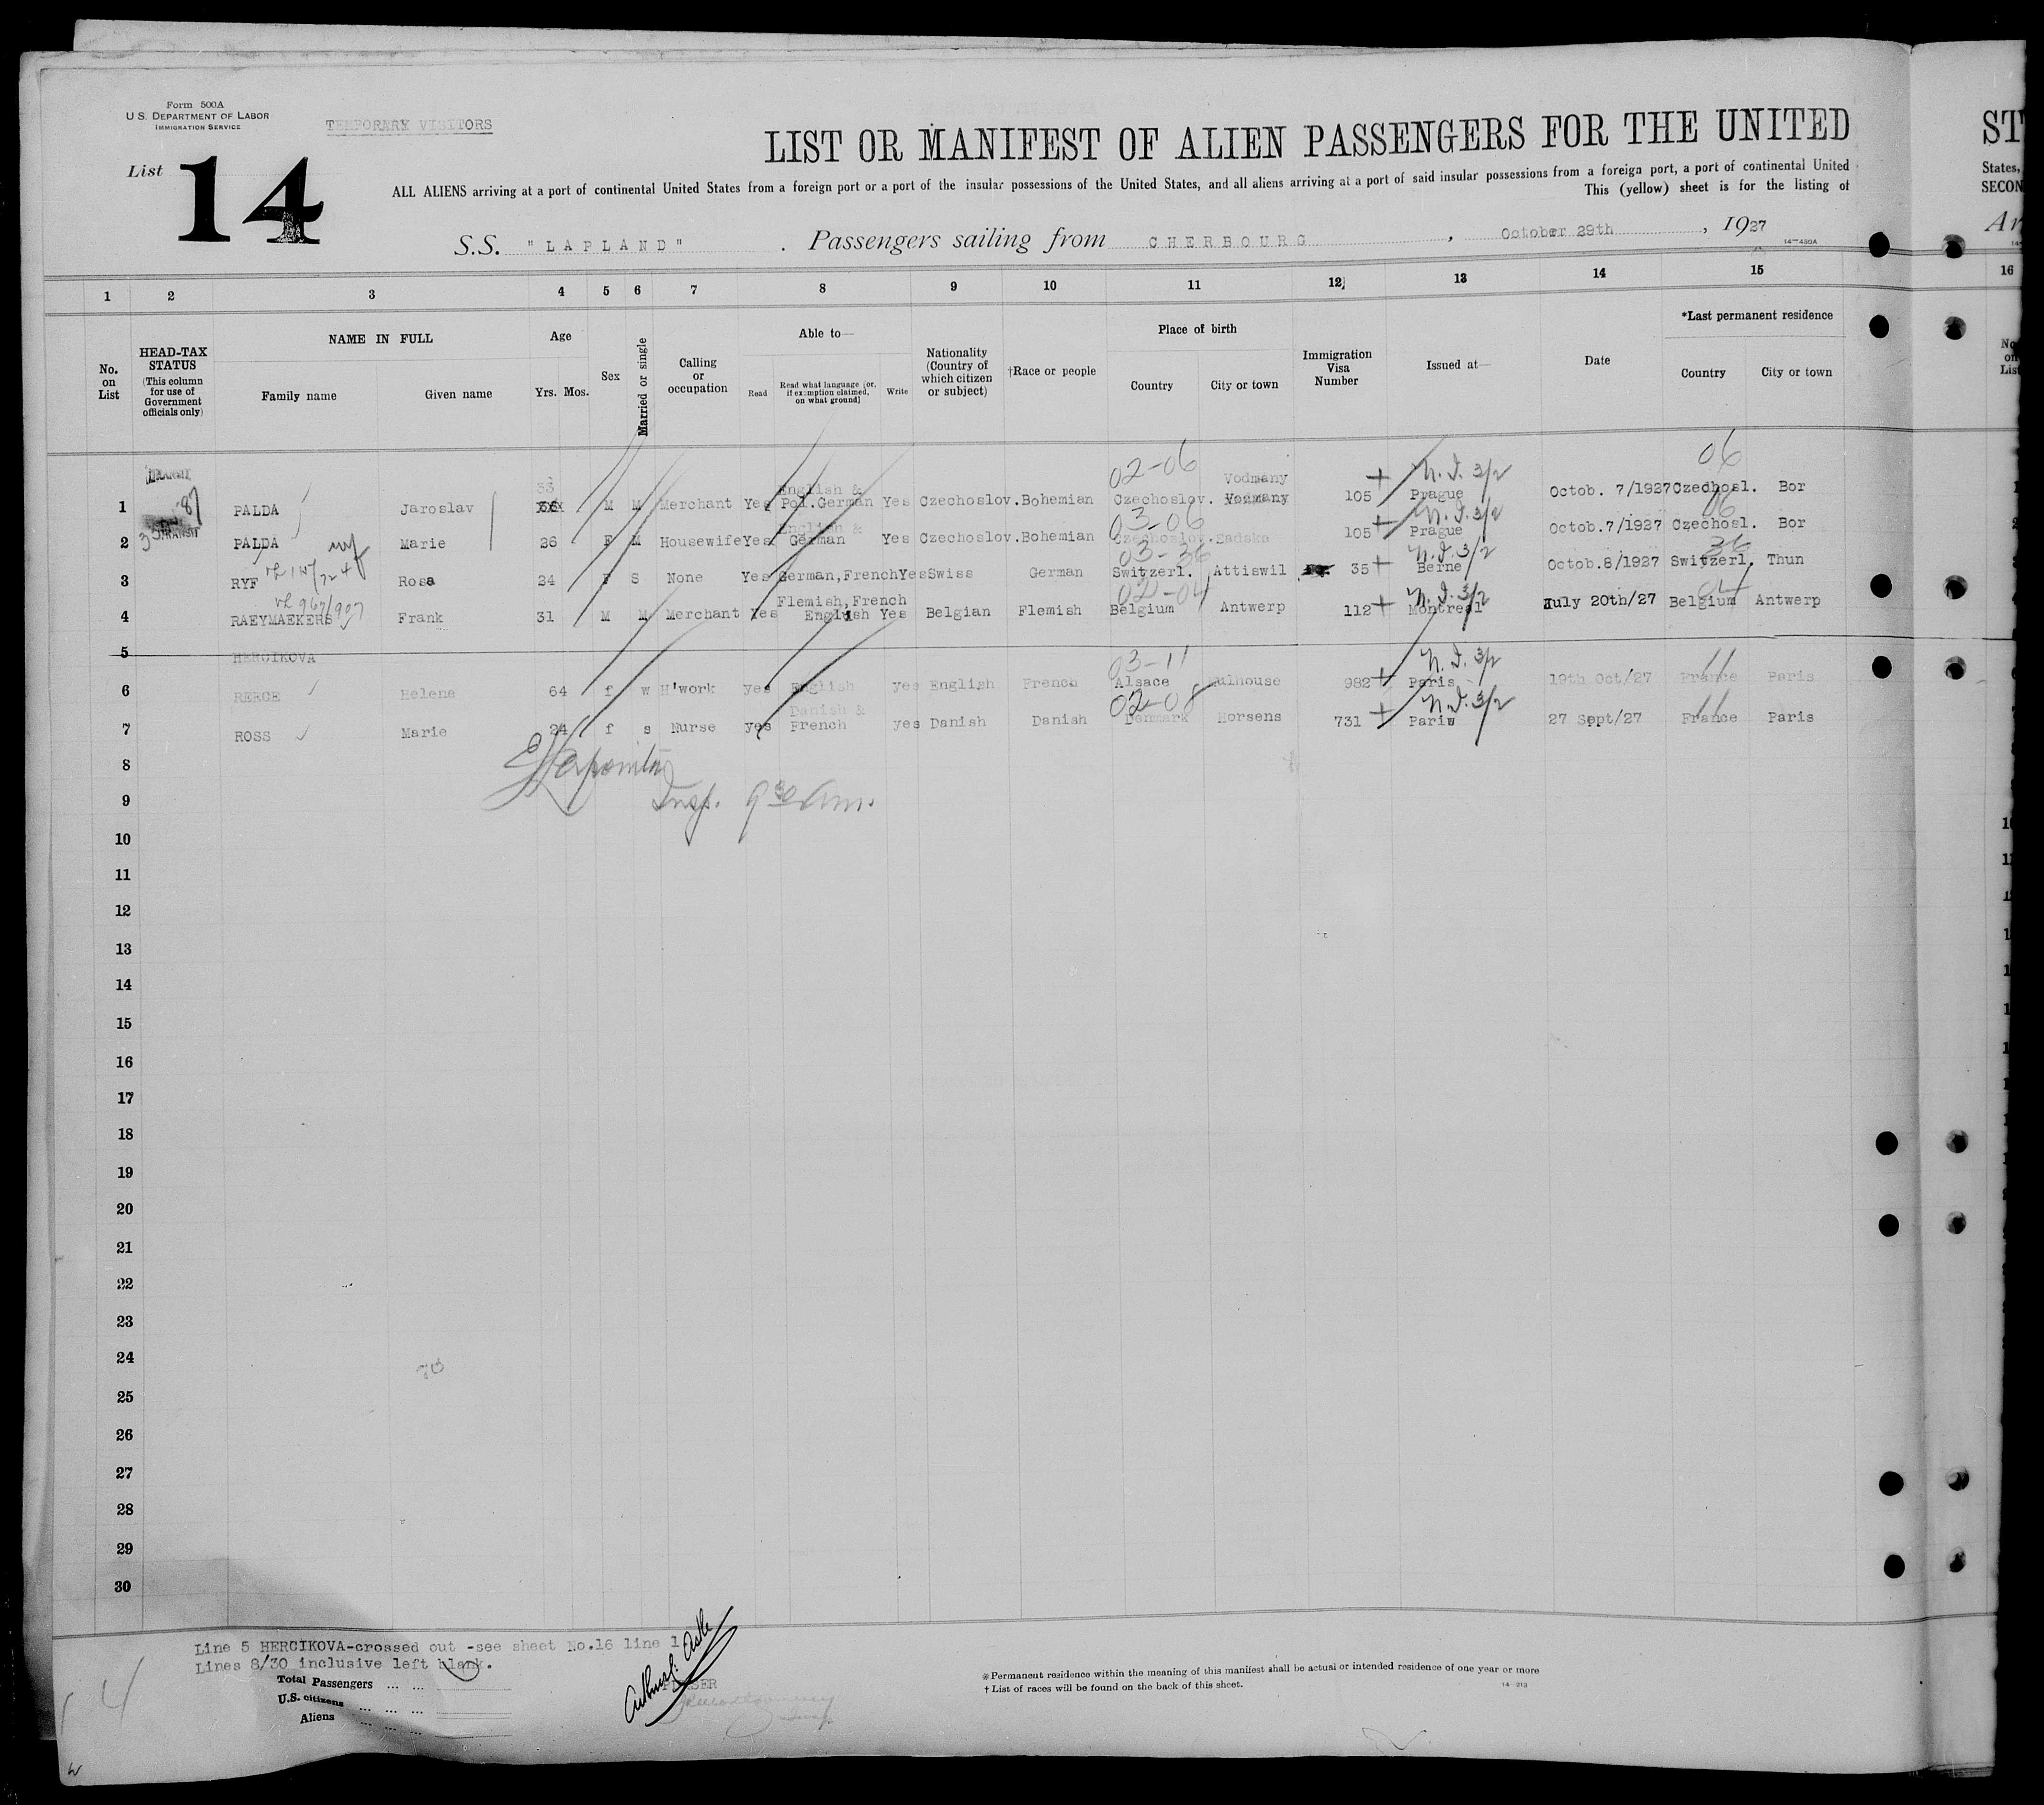 Form 500A
U. S. DEPARTMENT OF LABOR
IMMIGRATION SERVICE
TEMPORARY VISITORS
List 14
LIST OR MANIFEST OF ALIEN PASSENGERS FOR THE UNITED
ST
ALL ALIENS arriving at a port of continental United States from a foreign port or a port of the insular possessions of the United States, and all aliens arriving at a port of said insular possessions from a foreign port, a port of continental United
States,
This (yellow) sheet is for the listing of
SECON
S.S. "LAPLAND" . Passengers sailing from CHERBOURG , October 29th , 1927
Ar
14-480A
1 2 3 4 5 6 7 8 9 10 11 12 13 14 15 16
No. on List
HEAD-TAX STATUS (This column for use of Government officials only)
NAME IN FULL
Family name Given name
Age
Yrs. Mos.
Sex
Married or single
Calling or occupation
Able to—
Read
Read what language (or, if exemption claimed, on what ground)
Write
Nationality (Country of which citizen or subject)
†Race or people
Place of birth
Country City or town
Immigration Visa Number
Issued at—
Date
*Last permanent residence
Country City or town
No. on List
TRANSIT
33 English & 02-06 Vodmany N.I. 3/2 06
1 PALDA Jaroslav M M Merchant Yes Pol.German Yes Czechoslov. Bohemian Czechoslov. Vodmany 105 Prague Octob. 7/1927 Czechosl. Bor
TRANSIT English & 03-06 N.I. 3/2 06
2 PALDA Marie 26 F M Housewife Yes German Yes Czechoslov. Bohemian Czechoslov. Sadska 105 Prague Octob.7/1927 Czechosl. Bor
03-36 N.I. 3/2 36
3 RYF Rosa 24 F S None Yes German,French Yes Swiss German Switzerl. Attiswil 35 Berne Octob.8/1927 Switzerl. Thun
967/907 Flemish,French 02-04 N.I. 3/2 04
4 RAEYMAEKERS Frank 31 M M Merchant Yes English Yes Belgian Flemish Belgium Antwerp 112 Montreal July 20th/27 Belgium Antwerp
5 HERCIKOVA
03-11 N.I. 3/2 11
6 REECE Helene 64 f w H'work yes English yes English French Alsace Mulhouse 982 Paris 19th Oct/27 France Paris
Danish & 02-08 N.I. 3/2 11
7 ROSS Marie 24 f s Nurse yes French yes Danish Danish Denmark Horsens 731 Paris 27 Sept/27 France Paris
8
Insp. 9 30 Am.
9
10
11
12
13
14
15
16
17
18
19
20
21
22
23
24
25
26
27
28
29
30
Line 5 HERCIKOVA-crossed out -see sheet No.16 line 1
Lines 8/30 inclusive left blank.
Total Passengers
U.S. citizens
Aliens
14
PURSER
*Permanent residence within the meaning of this manifest shall be actual or intended residence of one year or more
† List of races will be found on the back of this sheet.
14-213